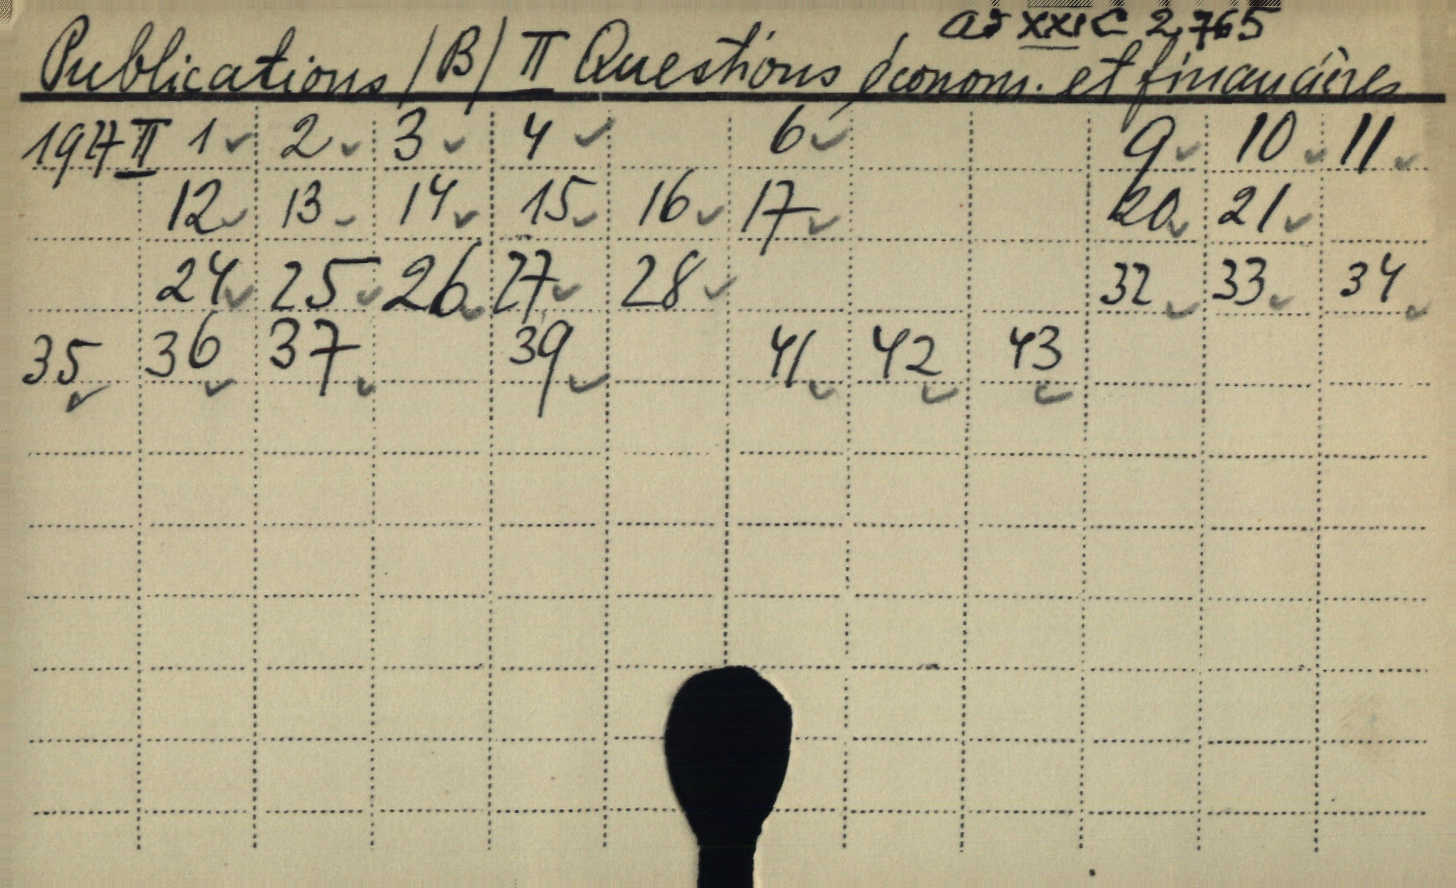 ad XXI C 2,765
Publications (B) II Questions économ. et financières
II 1 ✓ 2 ✓ 3 ✓ 4 ✓ 6 ✓ 9 ✓ 10 ✓ 11 ✓
12 ✓ 13 ✓ 14 ✓ 15 ✓ 16 ✓ 17 ✓ 20 ✓ 21 ✓
24 ✓ 25 ✓ 26 ✓ 27 ✓ 28 ✓ 32 ✓ 33 ✓ 34 ✓
35 ✓ 36 ✓ 37 ✓ 39 ✓ 41 ✓ 42 ✓ 43 ✓